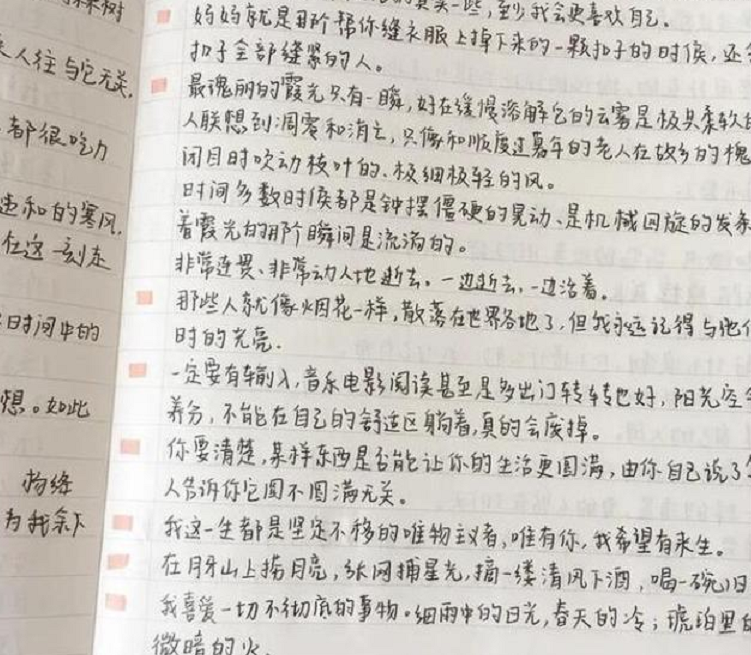 棵树
人往与它无关.
都很吃力
和的寒风.
在这一刻走
时间中的
想。如此
为我余下
一些,至少我会更喜欢自己.
妈妈就是那个帮你缝衣服上掉下来的一颗扣子的时候,还
扣子全部缝紧的人。
最瑰丽的霞光只有一瞬,好在缓慢溶解它的云雾是极其柔软
人联想到凋零和消亡,只像和顺度过暮年的老人在故乡的槐
闭目时吹动枝叶的、极细极轻的风。
时间多数时候都是钟摆僵硬的晃动、是机械回旋的发条
着霞光的那个瞬间是流淌的。
非常连贯、非常动人地逝去。一边逝去,一边活着。
那些人就像烟花一样,散落在世界各地了.但我永远记得与他们
时的光亮.
一定要有输入,音乐电影阅读甚至是多出门转转也好,阳光空
养分,不能在自己的舒适区躺着,真的会废掉。
你要清楚,某样东西是否能让你的生活更圆满,由你自己说了
人告诉你它圆不圆满无关。
我这一生都是坚定不移的唯物主义者,唯有你,我希望有来生。
在月牙山上捞月亮,张网捕星光,摘一缕清风下酒,喝一碗旧
我喜爱一切不彻底的事物。细雨中的日光,春天的冷;琥珀里
微暗的火.